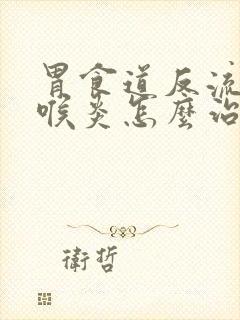 胃食道反流
喉炎怎麼治
衛哲